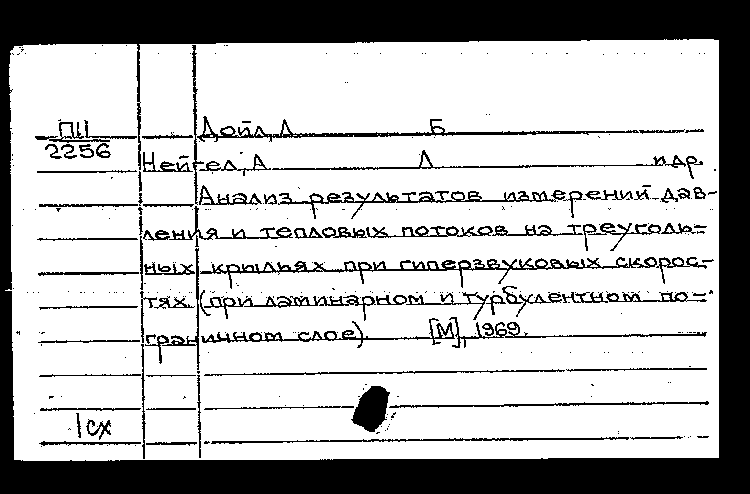 П11
2256
Дойл, Д Б
Нейгел, А Л и др.
Анализ результатов измерений дав-
ления и тепловых потоков на треуголь-
ных крыльях при гиперзвуковых скорос-
тях (при ламинарном и турбулентном по-
граничном слое). [М], 1969.
1 сх